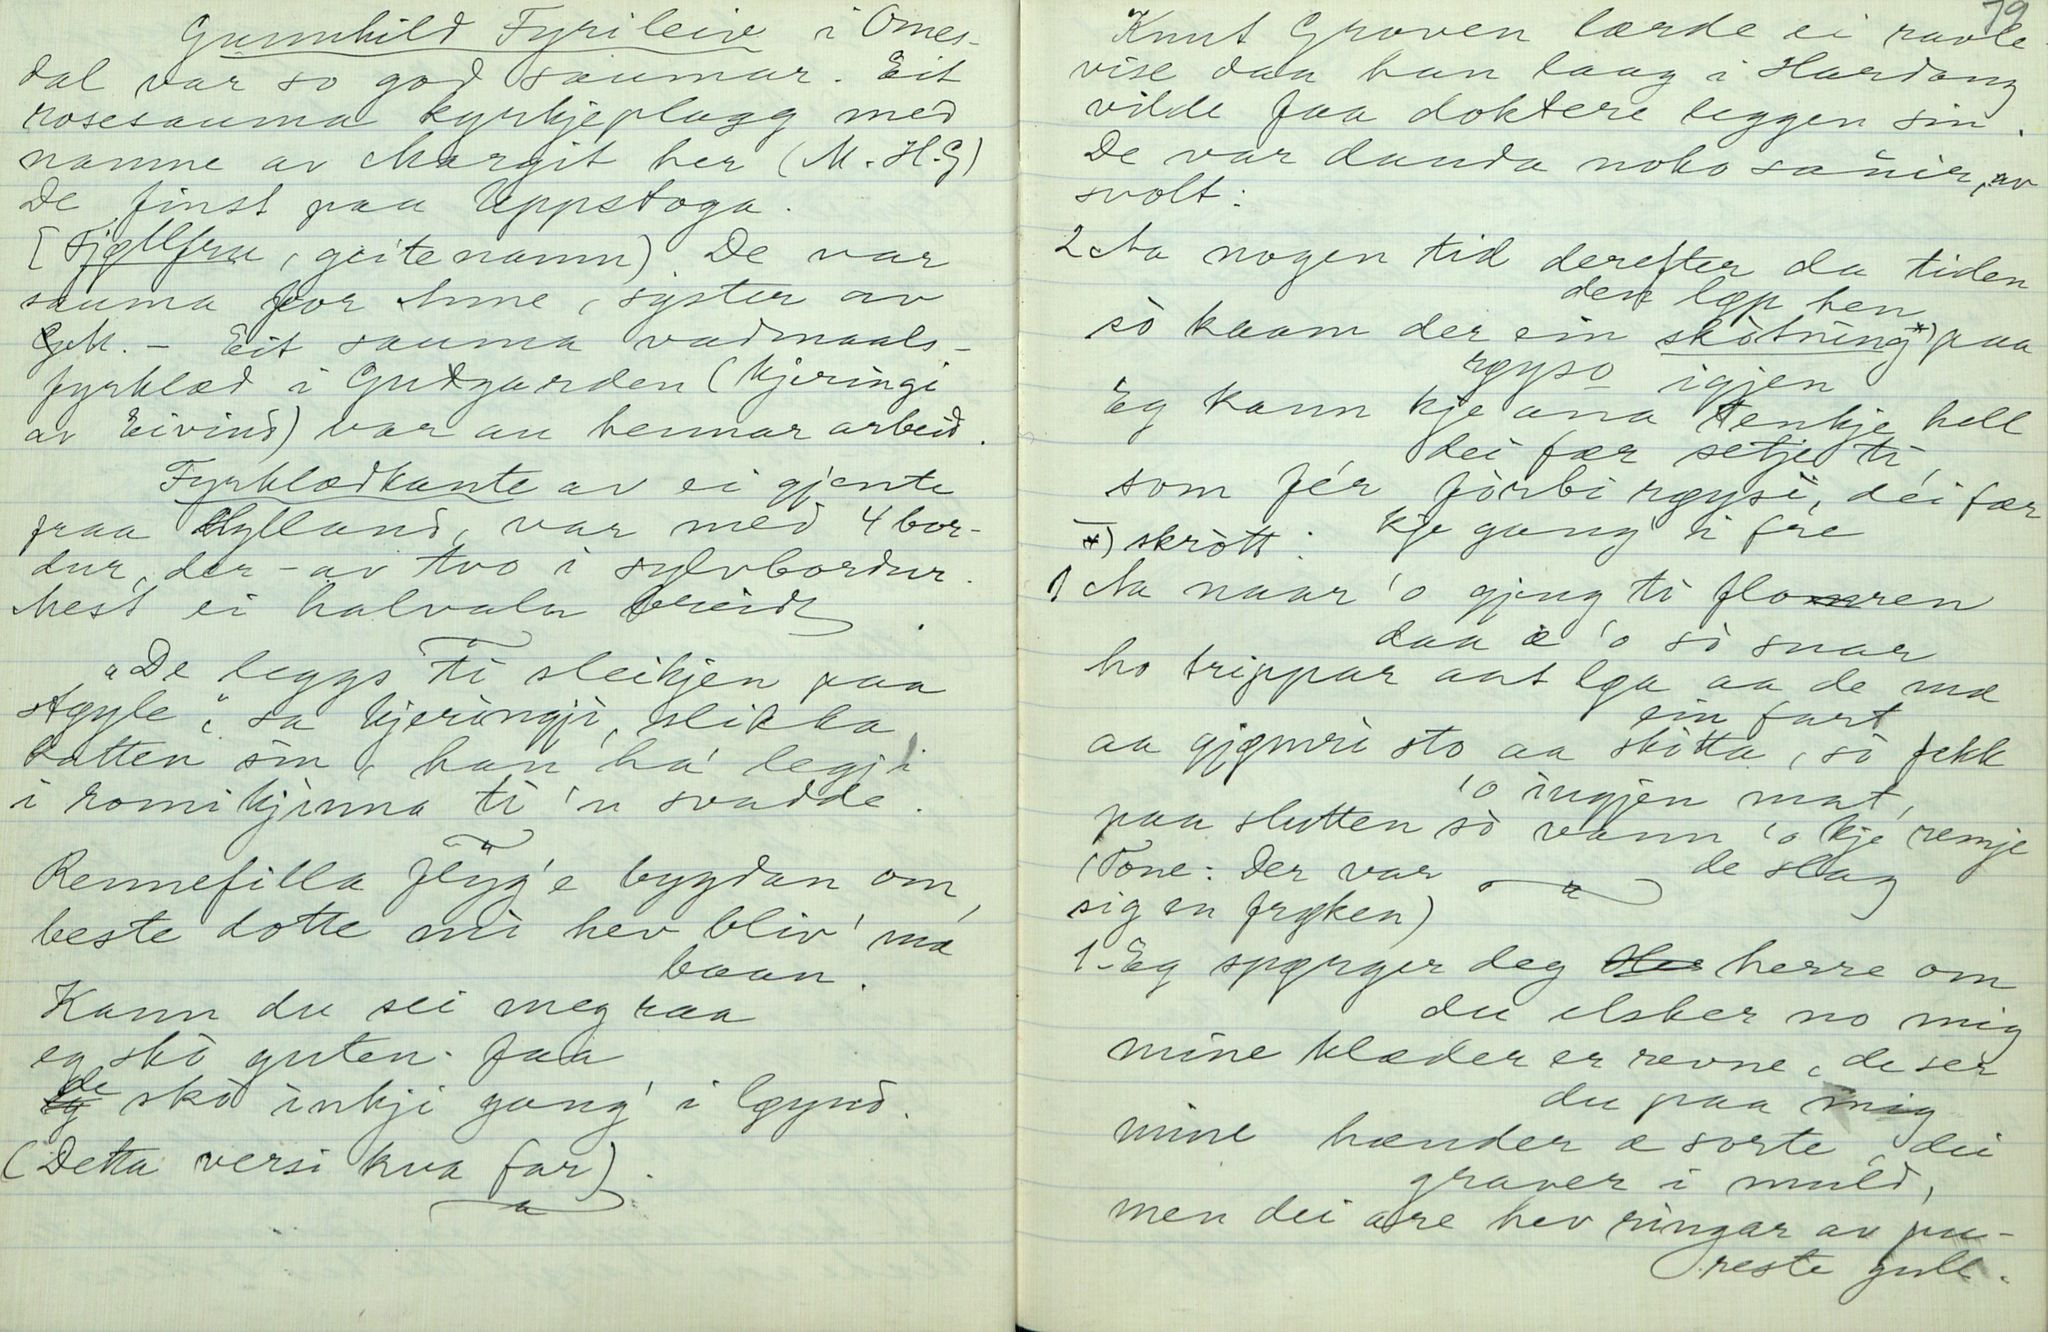 Gunnhild Fyrileiv i Omes-
dal var so god saumar. Eit
rosesauma kyrkjeplagg med
namne av Margit her (M. H. G)
De finst paa Uppstoga.
[Fjøllfru, geitenamn) De var
sauma for Anne, syster av
GM. - Eit sauma vadmaals-
fyrklæd i Gudgarden (kjeringi
av Eivind) var au hennar arbeid.
Fyrklædkante av ei gjente
fraa Hylland, var med 4 bor-
dur, der - av tvo i sylvbordur.
Mest ei halvaln breidt.
"De leggs ti sleikjen paa
støyle", sa kjeringji, slikka
katten sin, han ha' legji
i romikjinna ti 'n svadde.
Rennefilla flyg'e bygdan om,
beste dotte mi hev bliv' mæ
baan.
Kann du sei meg raa
eg skò guten faa
de skò inkji gang' i løynd.
(Detta versi kva far).
79
Knut Groven lærde ei ravle-
vise daa han laag i Hardang
vilde faa doktere leggen sin.
De var danda noko sa nir, av
svolt:
2 Aa nogen tid derefter da tiden
den løp hen
sò kaam der ein skòtning*) paa
røyso igjen
Eg kann kje ana tenkje hell
dei fær setje ti,
som fér fòrbi røysi, déi fær
kje gang' i fre
*) skròtt:
1 Aa naar 'o gjeng ti floren
daa æ 'o sò snar
ho trippar aat løa aa de mæ
ein fart
aa gjønri sto aa skitta, sò fekk
'o ingjen mat,
paa slutten sò vann 'o kje remje
(Tone: Der var de slag
sig en frøken)
1. Eg spørger deg herre om
du elsker no mig
mine klæder er revne, de ser
du paa mig
mine hænder æ sorte, dei
graver i muld,
men dei are hev ringar av pu-
reste gull.